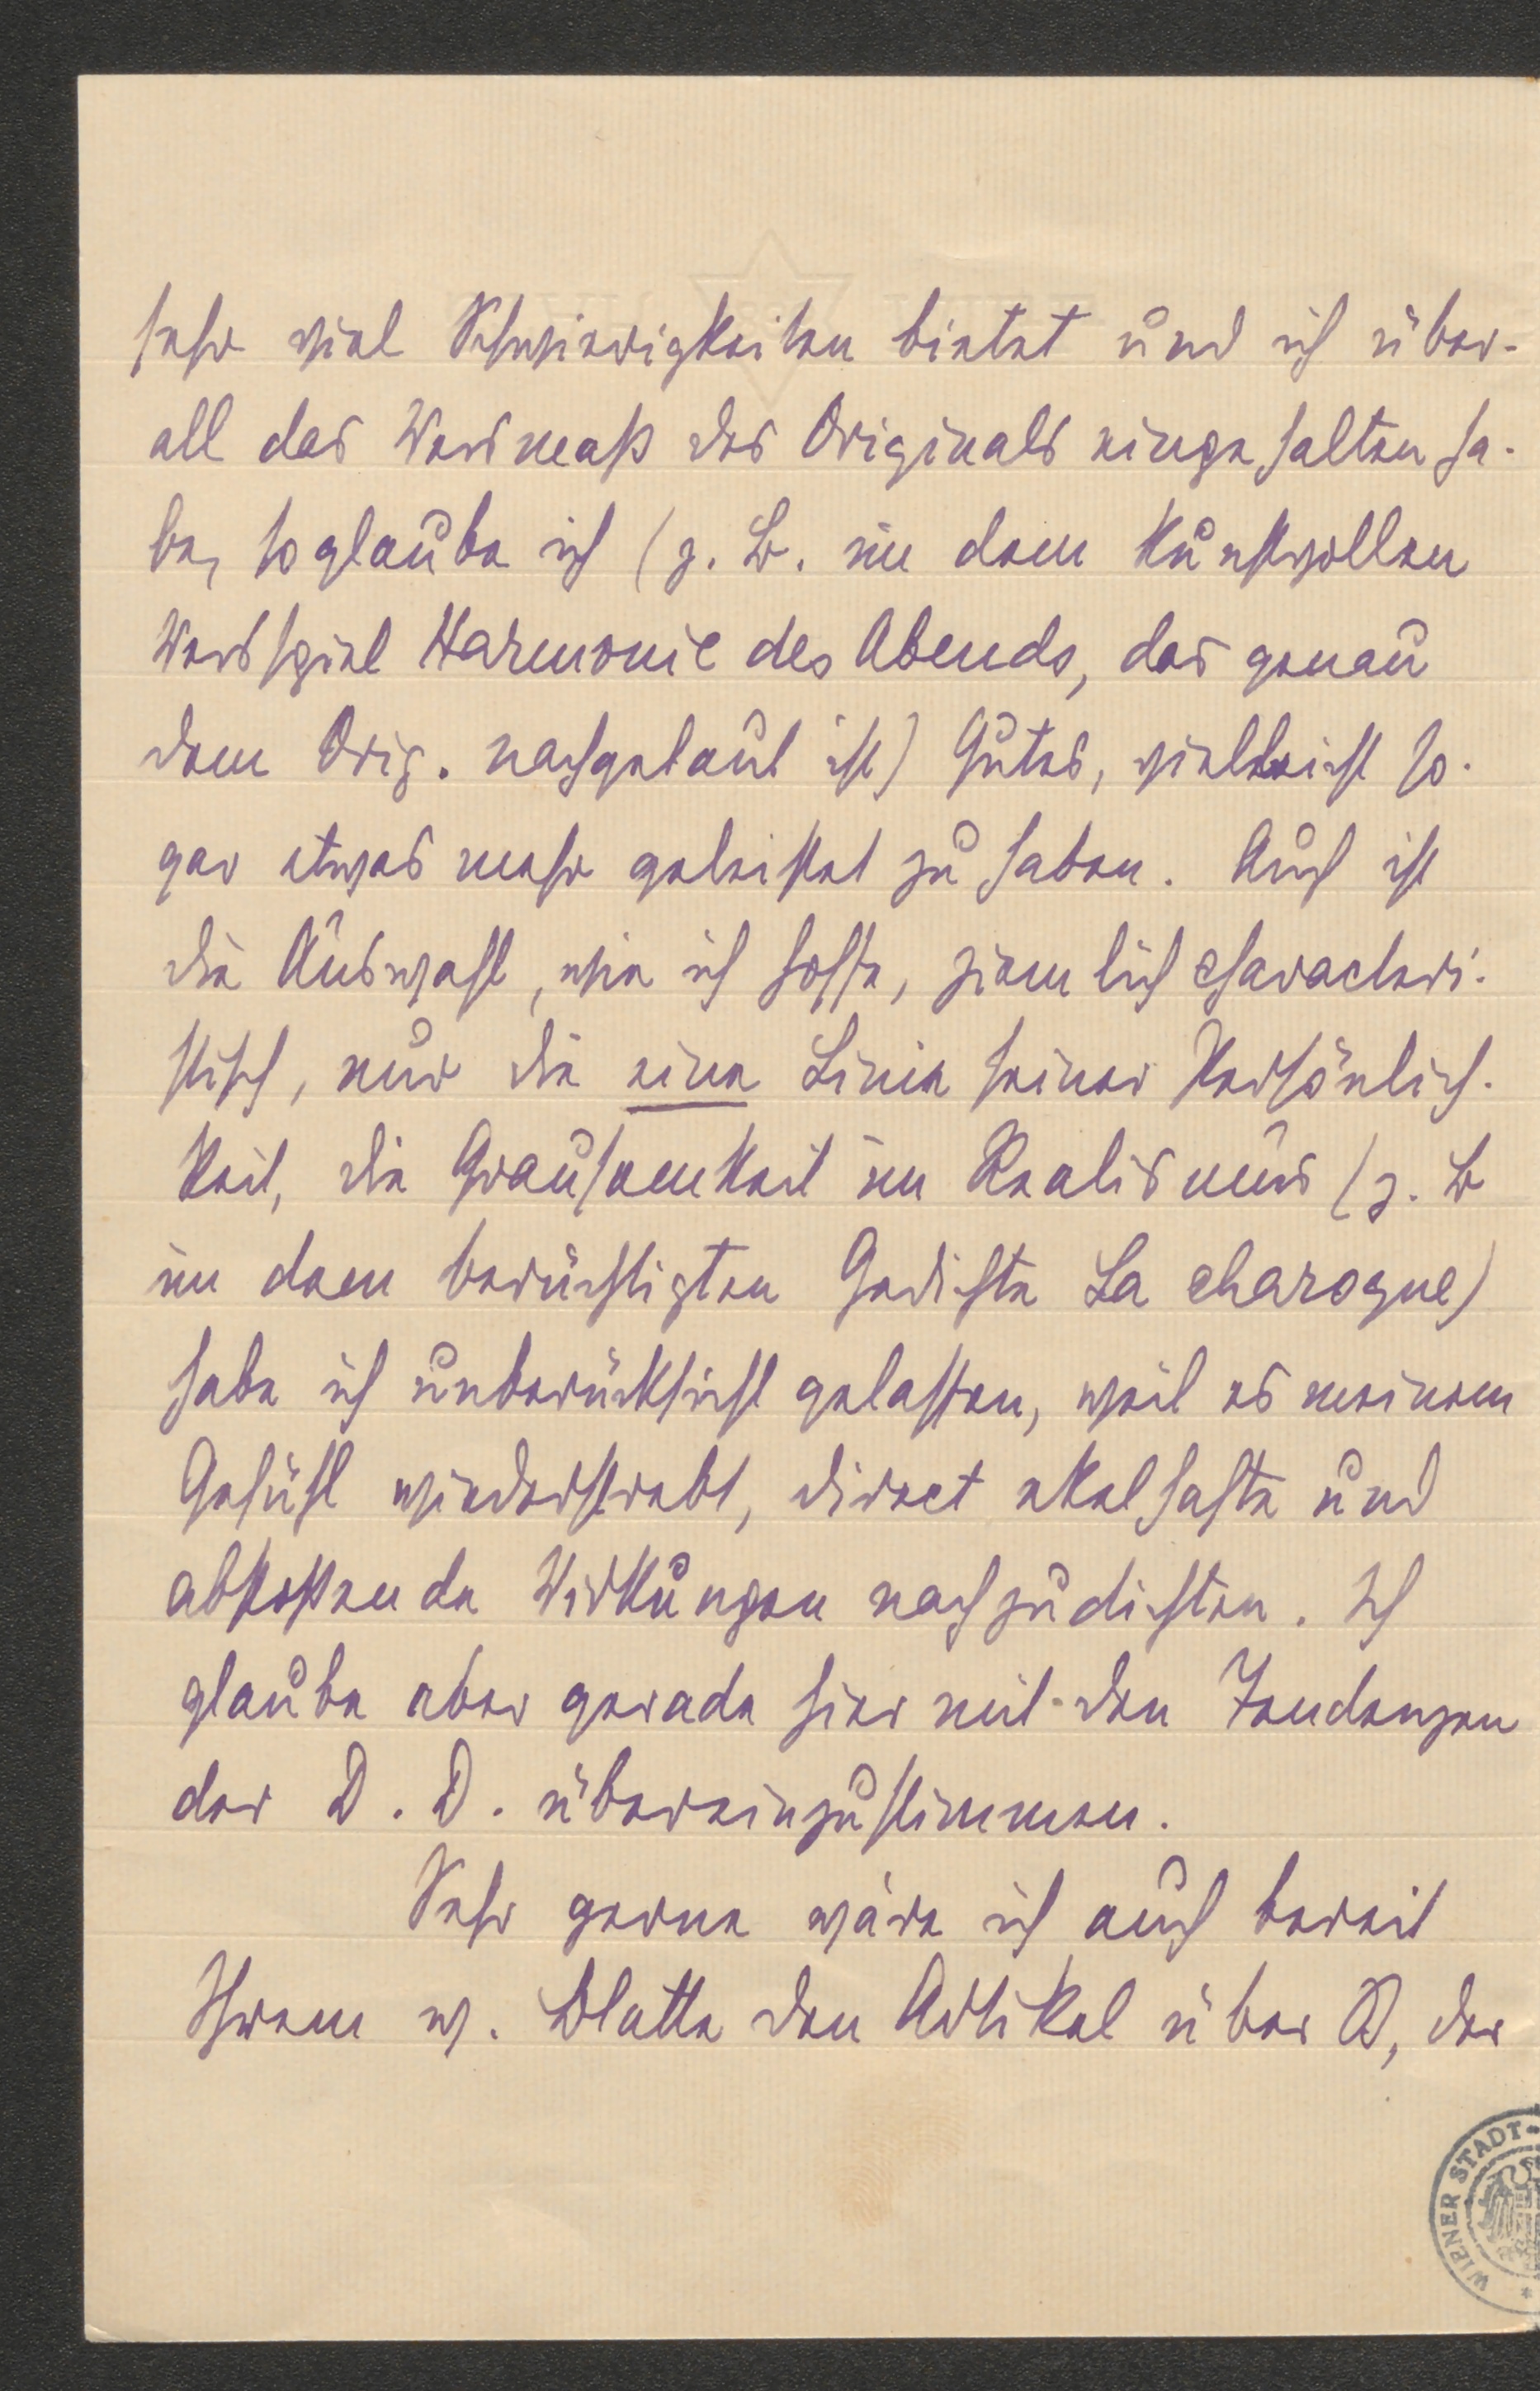 sehr viel Schwierigkeiten bietet und ich über-
all das Versmaß des Originals eingehalten ha-
be, so glaube ich (z. B. in dem kunstvollen
Versspiel Harmonie des Abends, das genau
dem Orig. nachgebaut ist) Gutes, vielleicht so-
gar etwas mehr geleistet zu haben. Auch ist
die Auswahl, wie ich hoffe, ziemlich characteri-
stisch, nur die eine Linie seiner Persönlich-
keit, die Grausamkeit im Realismus (z. B
in dem berüchtigten Gedichte La charogne)
habe ich unberücksicht gelassen, weil es meinem
Gefühl wiederstrebt, direct ekelhafte und
abstossende Wirkungen nachzudichten. Ich
glaube aber gerade hier mit den Tendenzen
der D. D. übereinzustimmen.
Sehr gerne wäre ich auch bereit
Ihrem w. Blatte den Artikel über B, der
WIENER STADT-